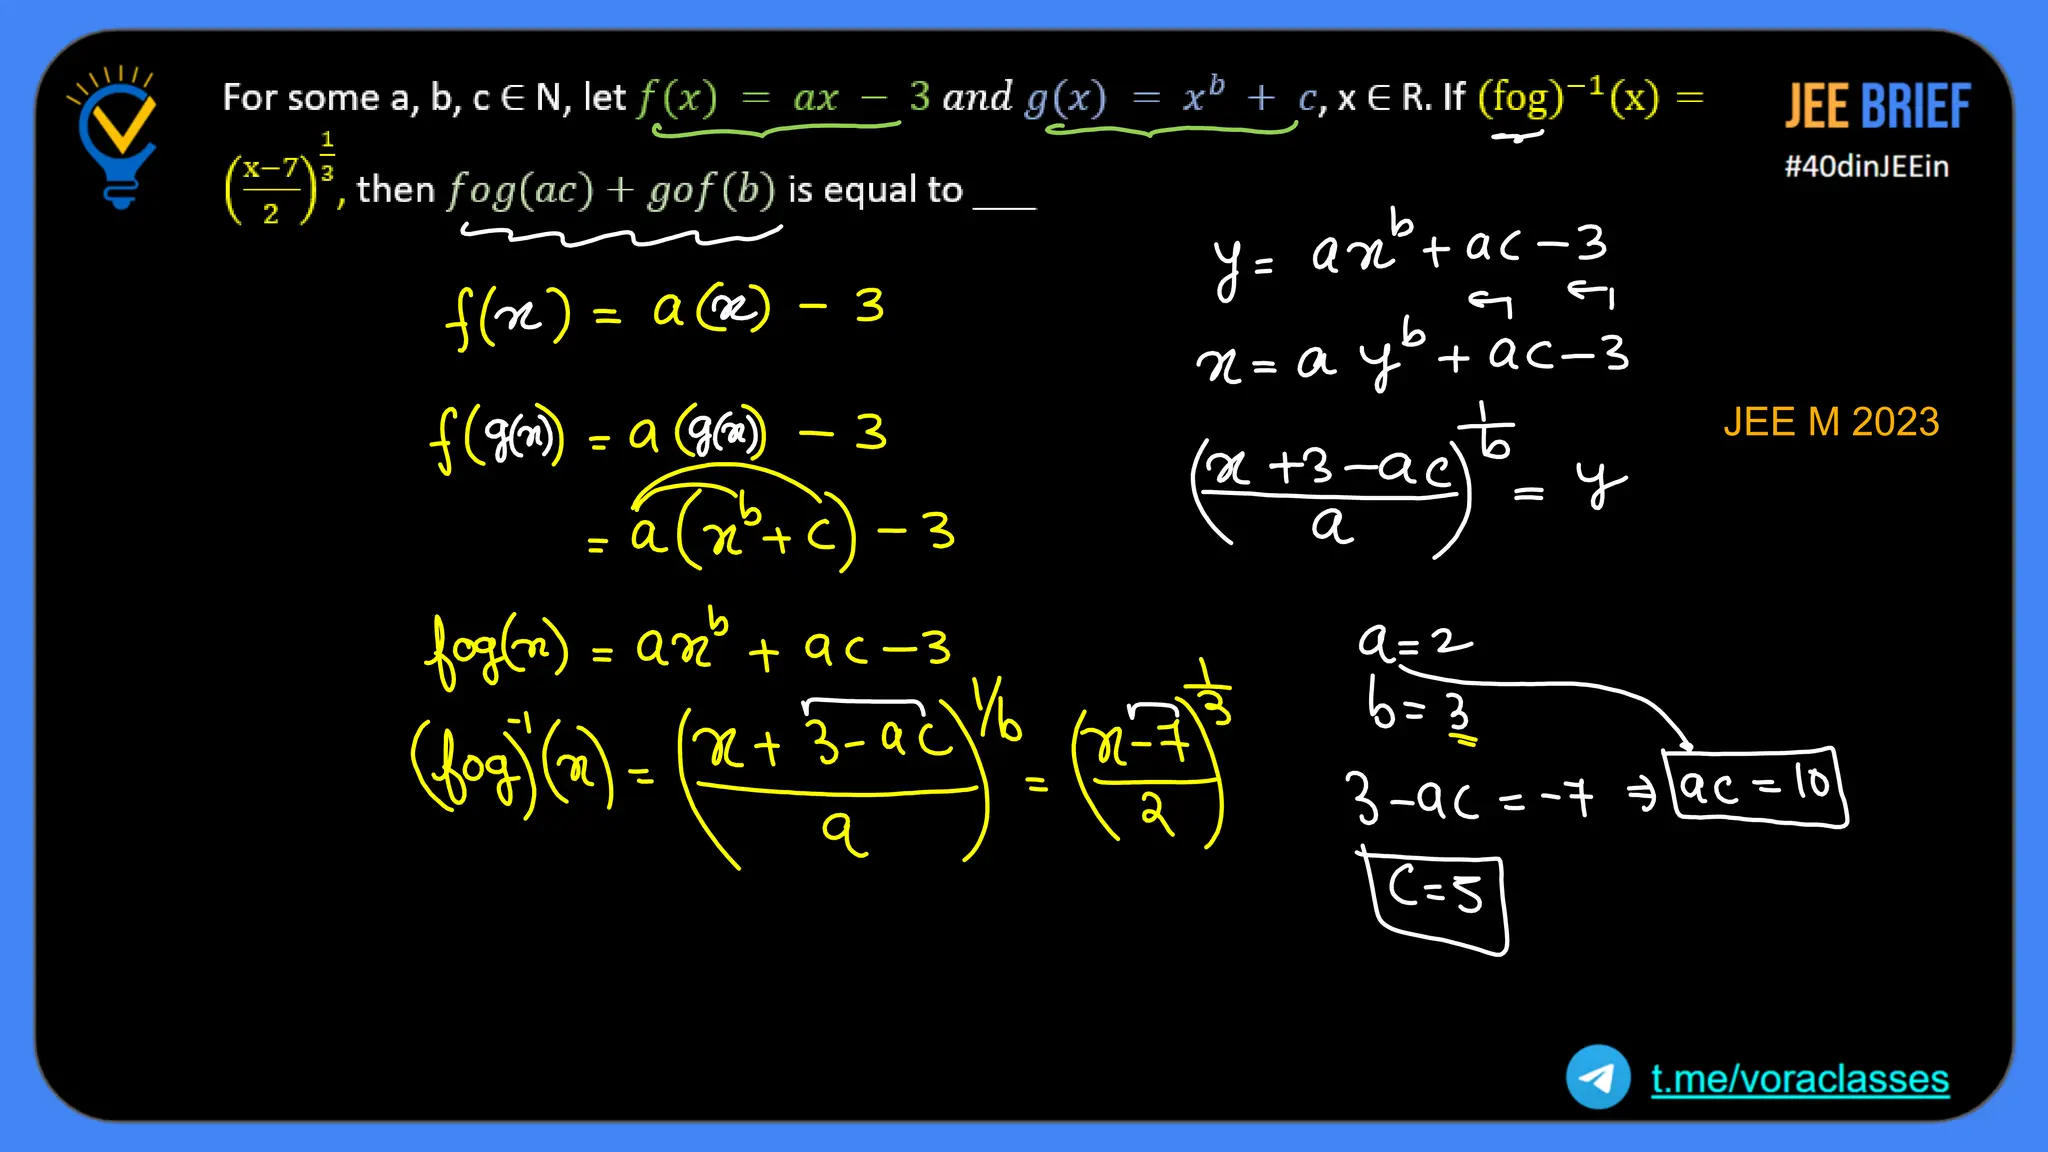 For some a, b, c ∈ N, let f(x) = ax − 3 and g(x) = x^b + c, x ∈ R. If (fog)^−1(x) =
((x−7)/2)^(1/3), then fog(ac) + gof(b) is equal to ___
JEE BRIEF
#40dinJEEin
f(x) = a(x) − 3
f(g(x)) = a(g(x)) − 3
= a(x^b + c) − 3
fog(x) = ax^b + ac − 3
(fog)^−1(x) = ((x + 3 − ac)/a)^(1/b) = ((x − 7)/2)^(1/3)
y = ax^b + ac − 3
x = a y^b + ac − 3
((x + 3 − ac)/a)^(1/b) = y
JEE M 2023
a = 2
b = 3
3 − ac = −7 ⇒ ac = 10
C = 5
t.me/voraclasses